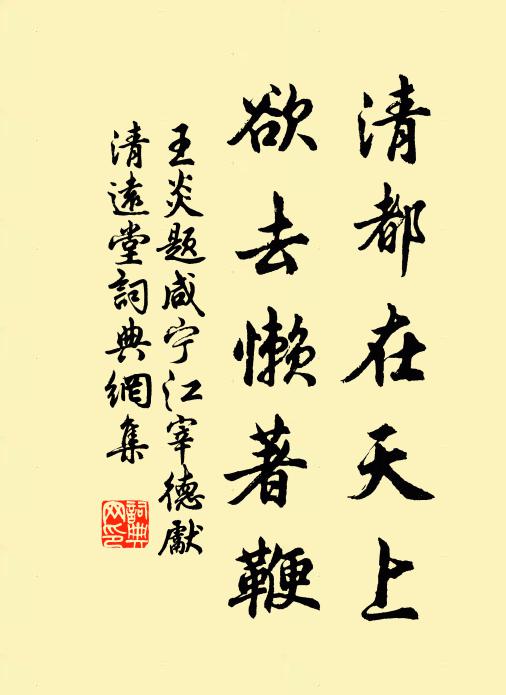 清都在天上
欲去懒著鞭
王炎题咸宁江宰德献
清远堂詞典網集
詞典
网印